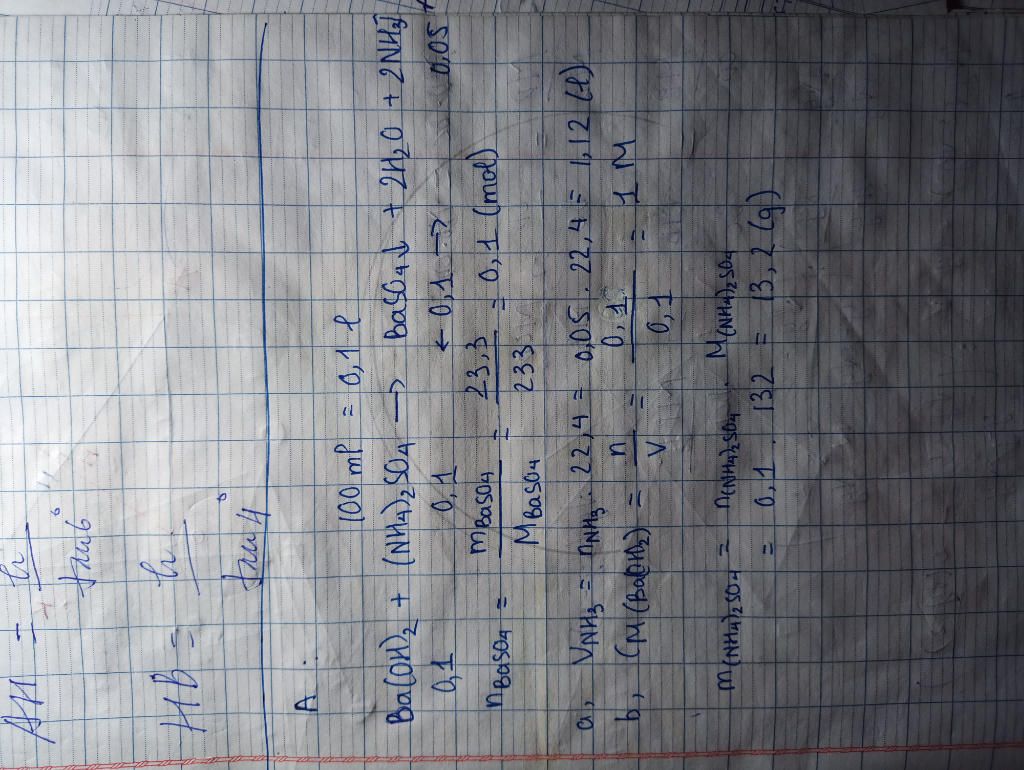 AH = h / tan 6°
HB = h / tan 4°
A :
100 ml = 0,1 l
Ba(OH)2 + (NH4)2SO4 → BaSO4↓ + 2H2O + 2NH3↑
0,1 0,1 ← 0,1 → 0,05
nBaSO4 = mBaSO4 / MBaSO4 = 23,3 / 233 = 0,1 (mol)
a, VNH3 = nNH3 . 22,4 = 0,05 . 22,4 = 1,12 (l)
b, CM(Ba(OH)2) = n / V = 0,1 / 0,1 = 1 M
m(NH4)2SO4 = n(NH4)2SO4 . M(NH4)2SO4
= 0,1 . 132 = 13,2 (g)